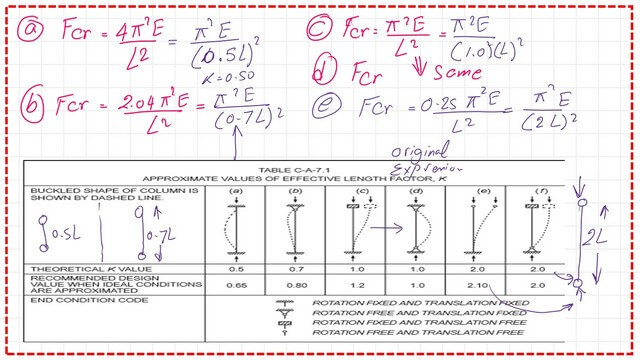 (a) Fcr = 4π²E / L² = π²E / (0.5L)²
K = 0.50
(b) Fcr = 2.04π²E / L² = π²E / (0.7L)²
(c) Fcr = π²E / L² = π²E / (1.0)(L)²
(d) Fcr Same
(e) Fcr = 0.25 π²E / L² = π²E / (2L)²
original
Expression
TABLE C-A-7.1
APPROXIMATE VALUES OF EFFECTIVE LENGTH FACTOR, K
BUCKLED SHAPE OF COLUMN IS SHOWN BY DASHED LINE. (a) (b) (c) (d) (e) (f)
0.5L 0.7L 2L
THEORETICAL K VALUE 0.5 0.7 1.0 1.0 2.0 2.0
RECOMMENDED DESIGN VALUE WHEN IDEAL CONDITIONS ARE APPROXIMATED 0.65 0.80 1.2 1.0 2.10 2.0
END CONDITION CODE ROTATION FIXED AND TRANSLATION FIXED
ROTATION FREE AND TRANSLATION FIXED
ROTATION FIXED AND TRANSLATION FREE
ROTATION FREE AND TRANSLATION FREE